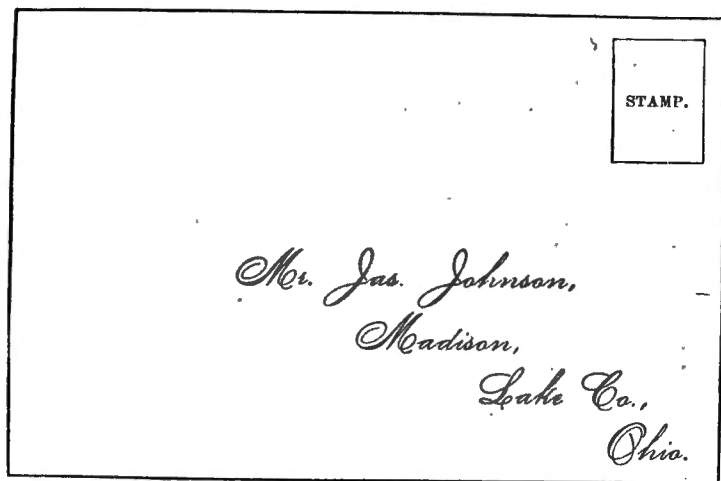 STAMP.
Mr. Jas. Johnson,
Madison,
Lake Co.,
Ohio.